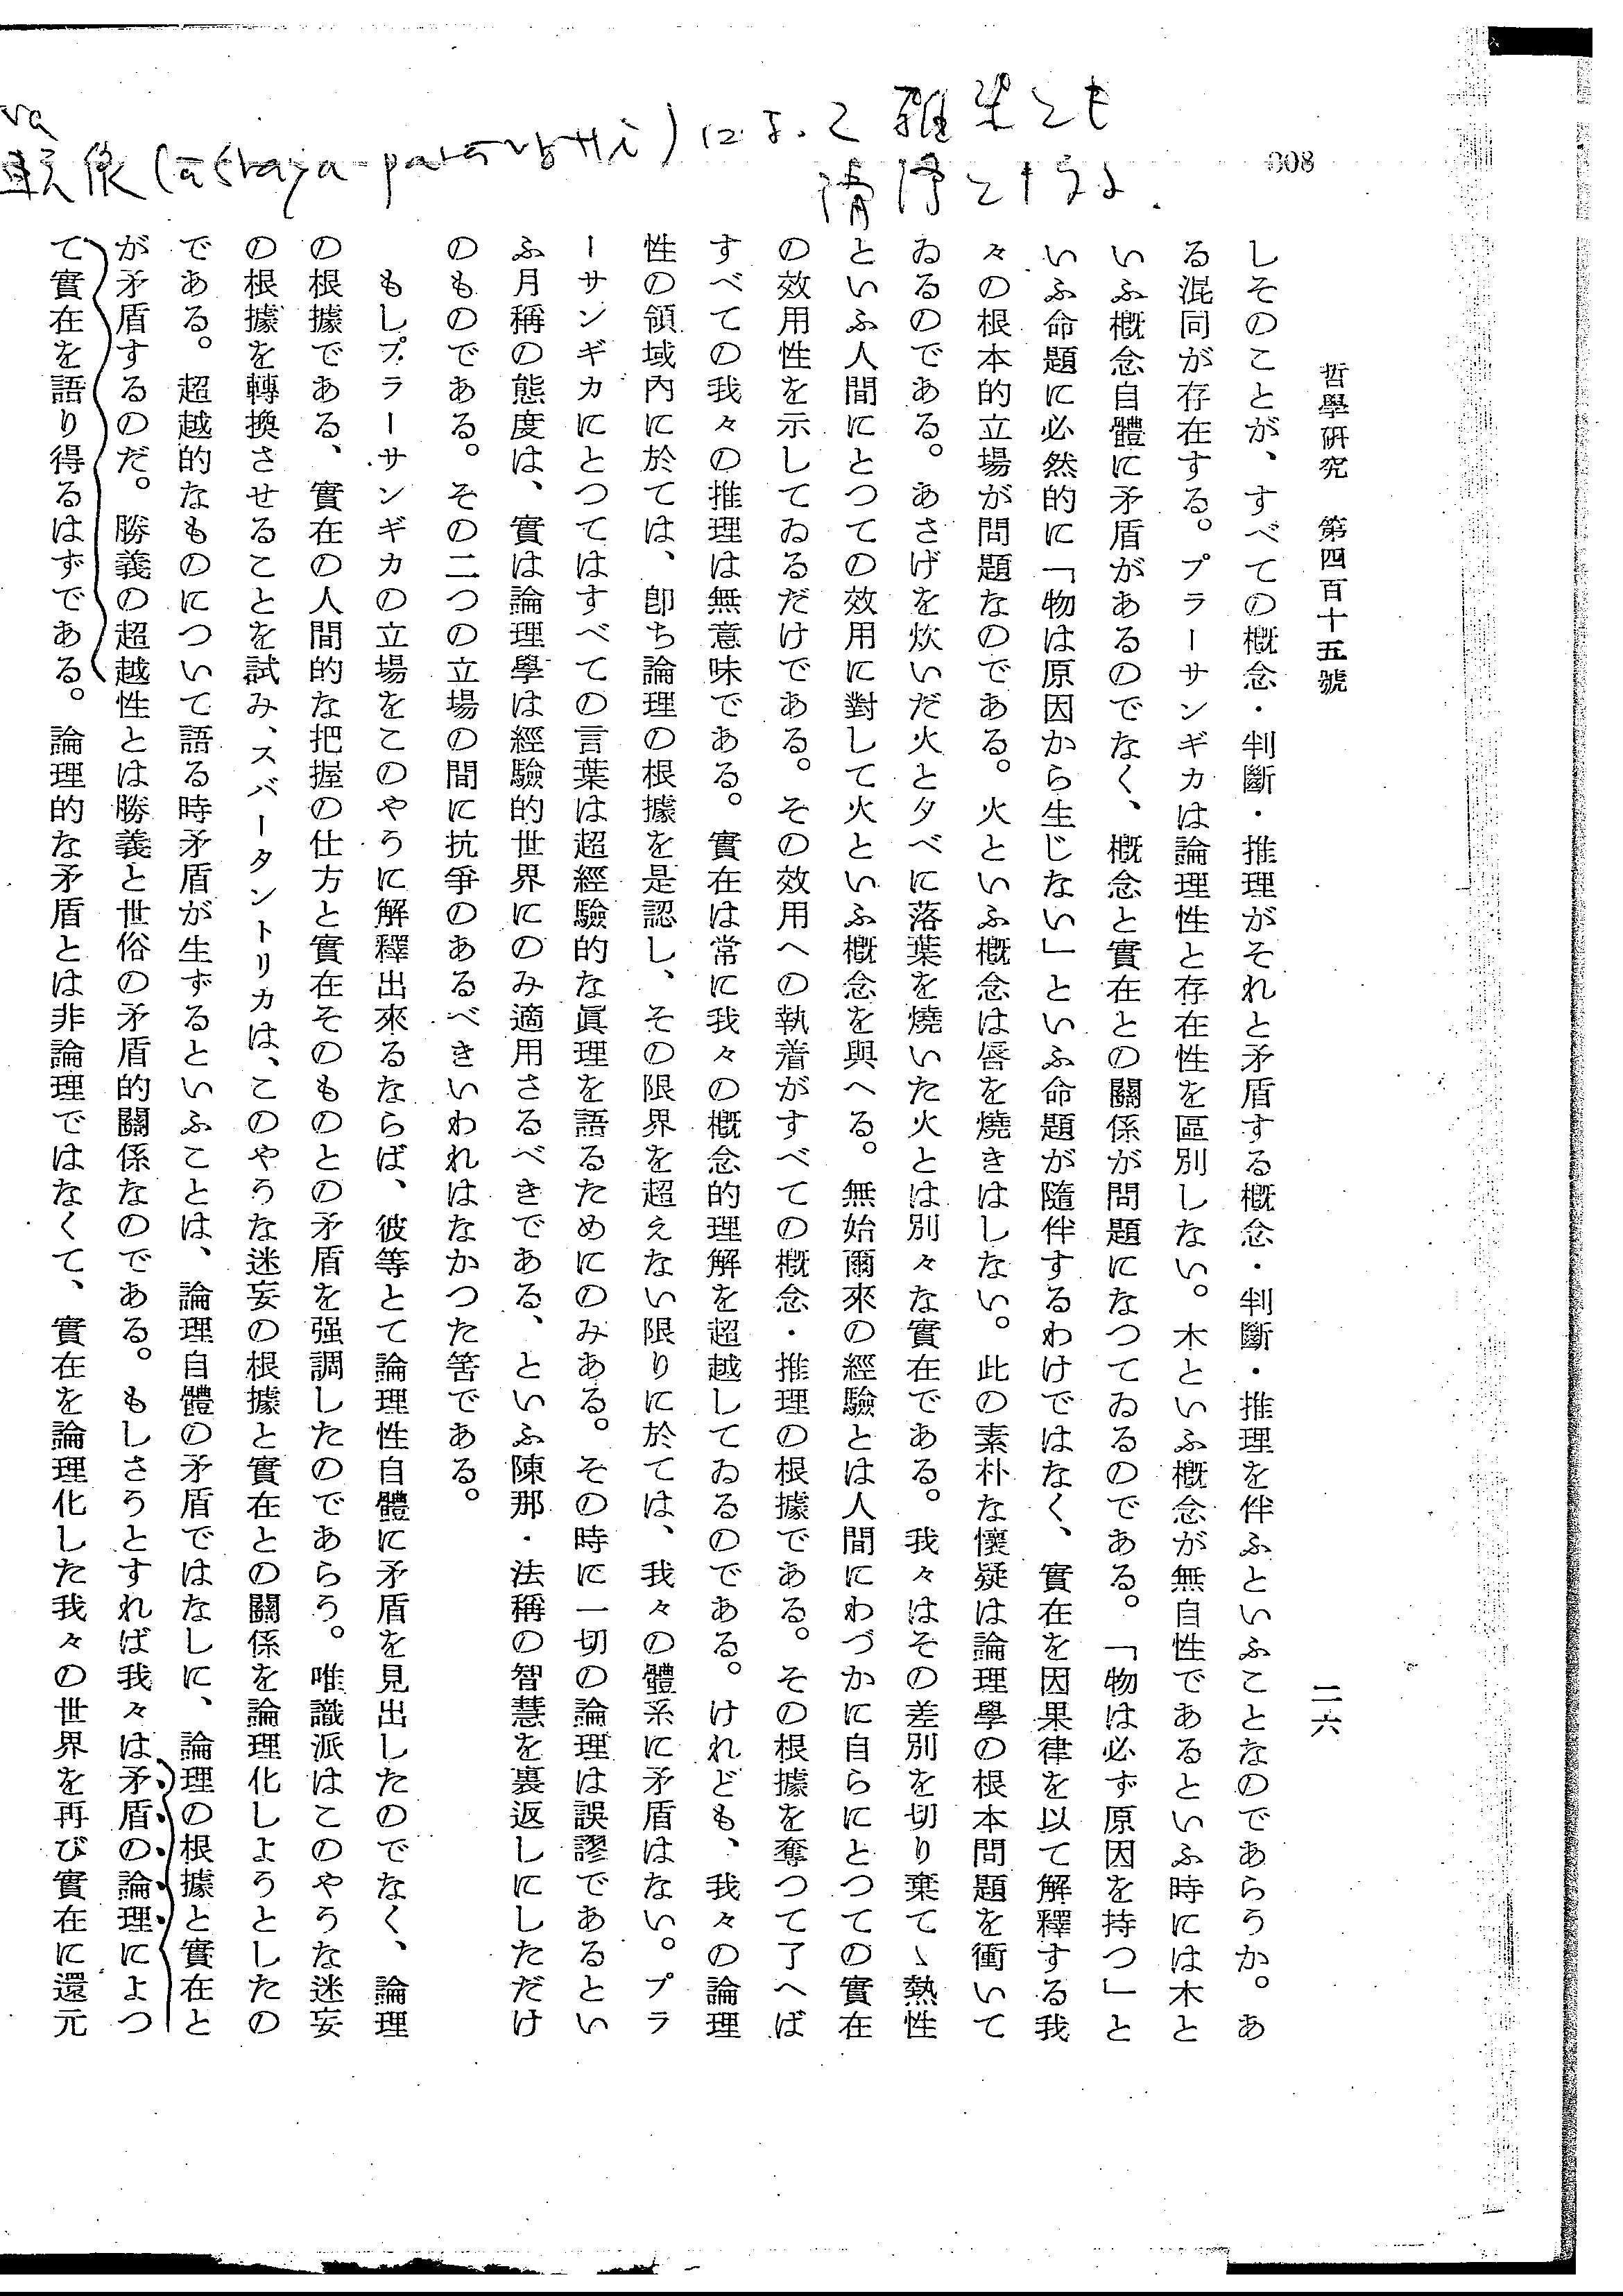 808
哲學硏究　第四百十五號
二六
しそのことが、すべての概念・判斷・推理がそれと矛盾する概念・判斷・推理を伴ふといふことなのであらうか。あ
る混同が存在する。プラーサンギカは論理性と存在性を區別しない。木といふ概念が無自性であるといふ時には木と
いふ概念自體に矛盾があるのでなく、概念と實在との關係が問題になつてゐるのである。「物は必ず原因を持つ」と
いふ命題に必然的に「物は原因から生じない」といふ命題が隨伴するわけではなく、實在を因果律を以て解釋する我
々の根本的立場が問題なのである。火といふ概念は唇を燒きはしない。此の素朴な懷疑は論理學の根本問題を衝いて
ゐるのである。あさげを炊いだ火と夕べに落葉を燒いた火とは別々な實在である。我々はその差別を切り棄てゝ熱性
といふ人間にとつての效用に對して火といふ概念を與へる。無始爾來の經驗とは人間にわづかに自らにとつての實在
の效用性を示してゐるだけである。その效用への執着がすべての概念・推理の根據である。その根據を奪つて了へば
すべての我々の推理は無意味である。實在は常に我々の概念的理解を超越してゐるのである。けれども、我々の論理
性の領域內に於ては、卽ち論理の根據を是認し、その限界を超えない限りに於ては、我々の體系に矛盾はない。プラ
ーサンギカにとつてはすべての言葉は超經驗的な眞理を語るためにのみある。その時に一切の論理は誤謬であるとい
ふ月稱の態度は、實は論理學は經驗的世界にのみ適用さるべきである、といふ陳那・法稱の智慧を裏返しにしただけ
のものである。その二つの立場の間に抗爭のあるべきいわれはなかつた筈である。
もしプラーサンギカの立場をこのやうに解釋出來るならば、彼等とて論理性自體に矛盾を見出したのでなく、論理
の根據である、實在の人間的な把握の仕方と實在そのものとの矛盾を强調したのであらう。唯識派はこのやうな迷妄
の根據を轉換させることを試み、スバータントリカは、このやうな迷妄の根據と實在との關係を論理化しようとしたの
である。超越的なものについて語る時矛盾が生ずるといふことは、論理自體の矛盾ではなしに、論理の根據と實在と
が矛盾するのだ。勝義の超越性とは勝義と世俗の矛盾的關係なのである。もしさうとすれば我々は矛盾の論理によつ
て實在を語り得るはずである。論理的な矛盾とは非論理ではなくて、實在を論理化した我々の世界を再び實在に還元
va
転依(āśraya-parāvṛtti)によって雑染とも
清浄ともなる.